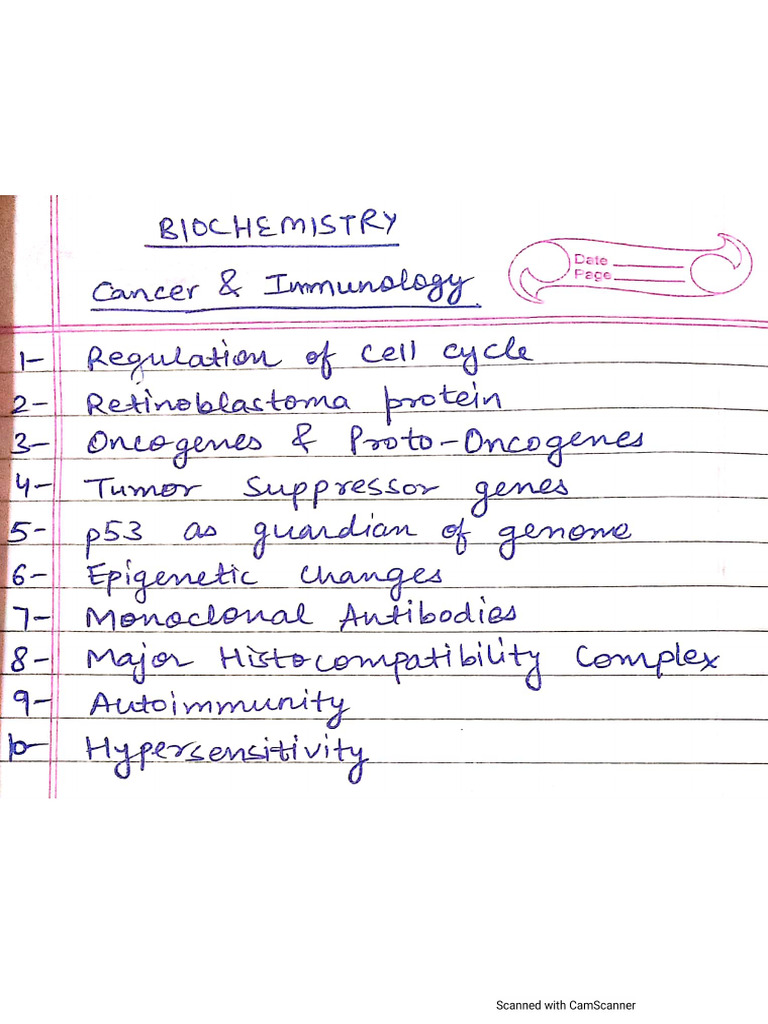 BIOCHEMISTRY
Cancer & Immunology
Date
Page
1- Regulation of cell cycle
2- Retinoblastoma protein
3- Oncogenes & Proto-Oncogenes
4- Tumor Suppressor genes
5- p53 as guardian of genome
6- Epigenetic changes
7- Monoclonal Antibodies
8- Major Histocompatibility Complex
9- Autoimmunity
10- Hypersensitivity
Scanned with CamScanner